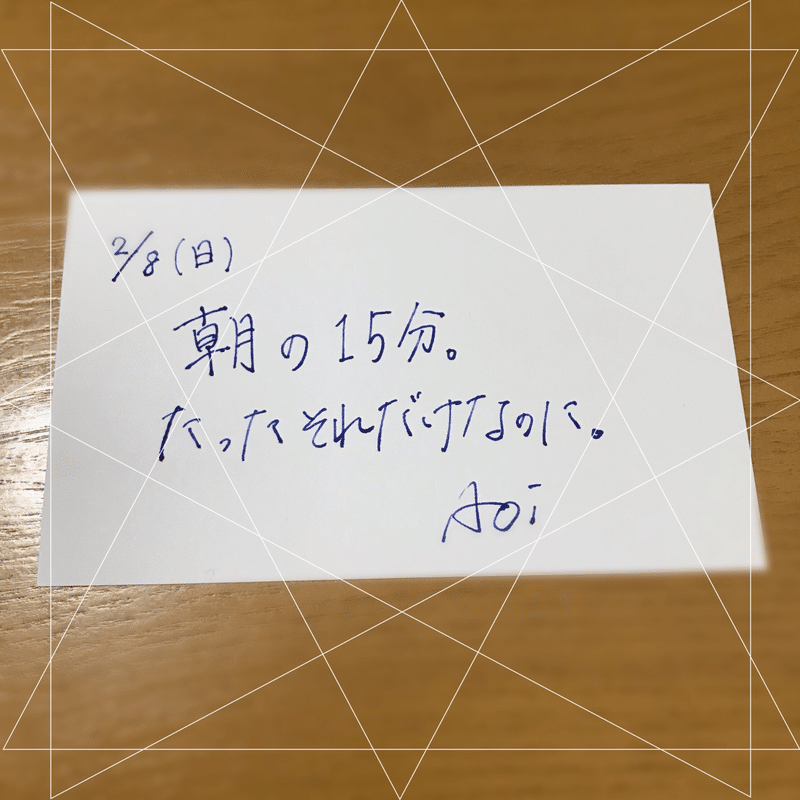 2/8(日)
朝の15分。
たったそれだけなのに。
Aoi